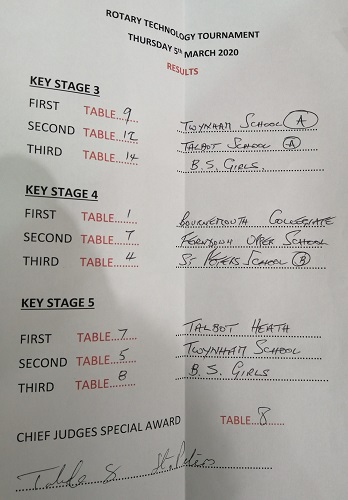 ROTARY TECHNOLOGY TOURNAMENT
THURSDAY 5th MARCH 2020
RESULTS
KEY STAGE 3
FIRST TABLE...9 TWYNHAM SCHOOL (A)
SECOND TABLE...12 TALBOT SCHOOL (A)
THIRD TABLE...14 B.S. GIRLS.
KEY STAGE 4
FIRST TABLE...1 BOURNEMOUTH COLLEGIATE
SECOND TABLE...7 FERNDOWN UPPER SCHOOL
THIRD TABLE...4 ST PETERS SCHOOL (B)
KEY STAGE 5
FIRST TABLE...7 TALBOT HEATH
SECOND TABLE...5 TWYNHAM SCHOOL
THIRD TABLE...8 B.S. GIRLS
CHIEF JUDGES SPECIAL AWARD TABLE...8
Table 8 St. Peters